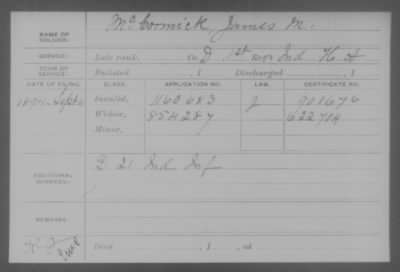 NAME OF SOLDIER: McCormick, James M.
SERVICE: Late rank, Co. D, 1st Reg't Ind H. A
TERM OF SERVICE: Enlisted , 1 Discharged , 1
DATE OF FILING. CLASS. APPLICATION NO. LAW. CERTIFICATE NO.
1894 Sept Invalid, 1160683 J 901676
Widow, 854287 622704
Minor,
ADDITIONAL SERVICES: D 21 Ind Inf
REMARKS:
Died , 1 , at